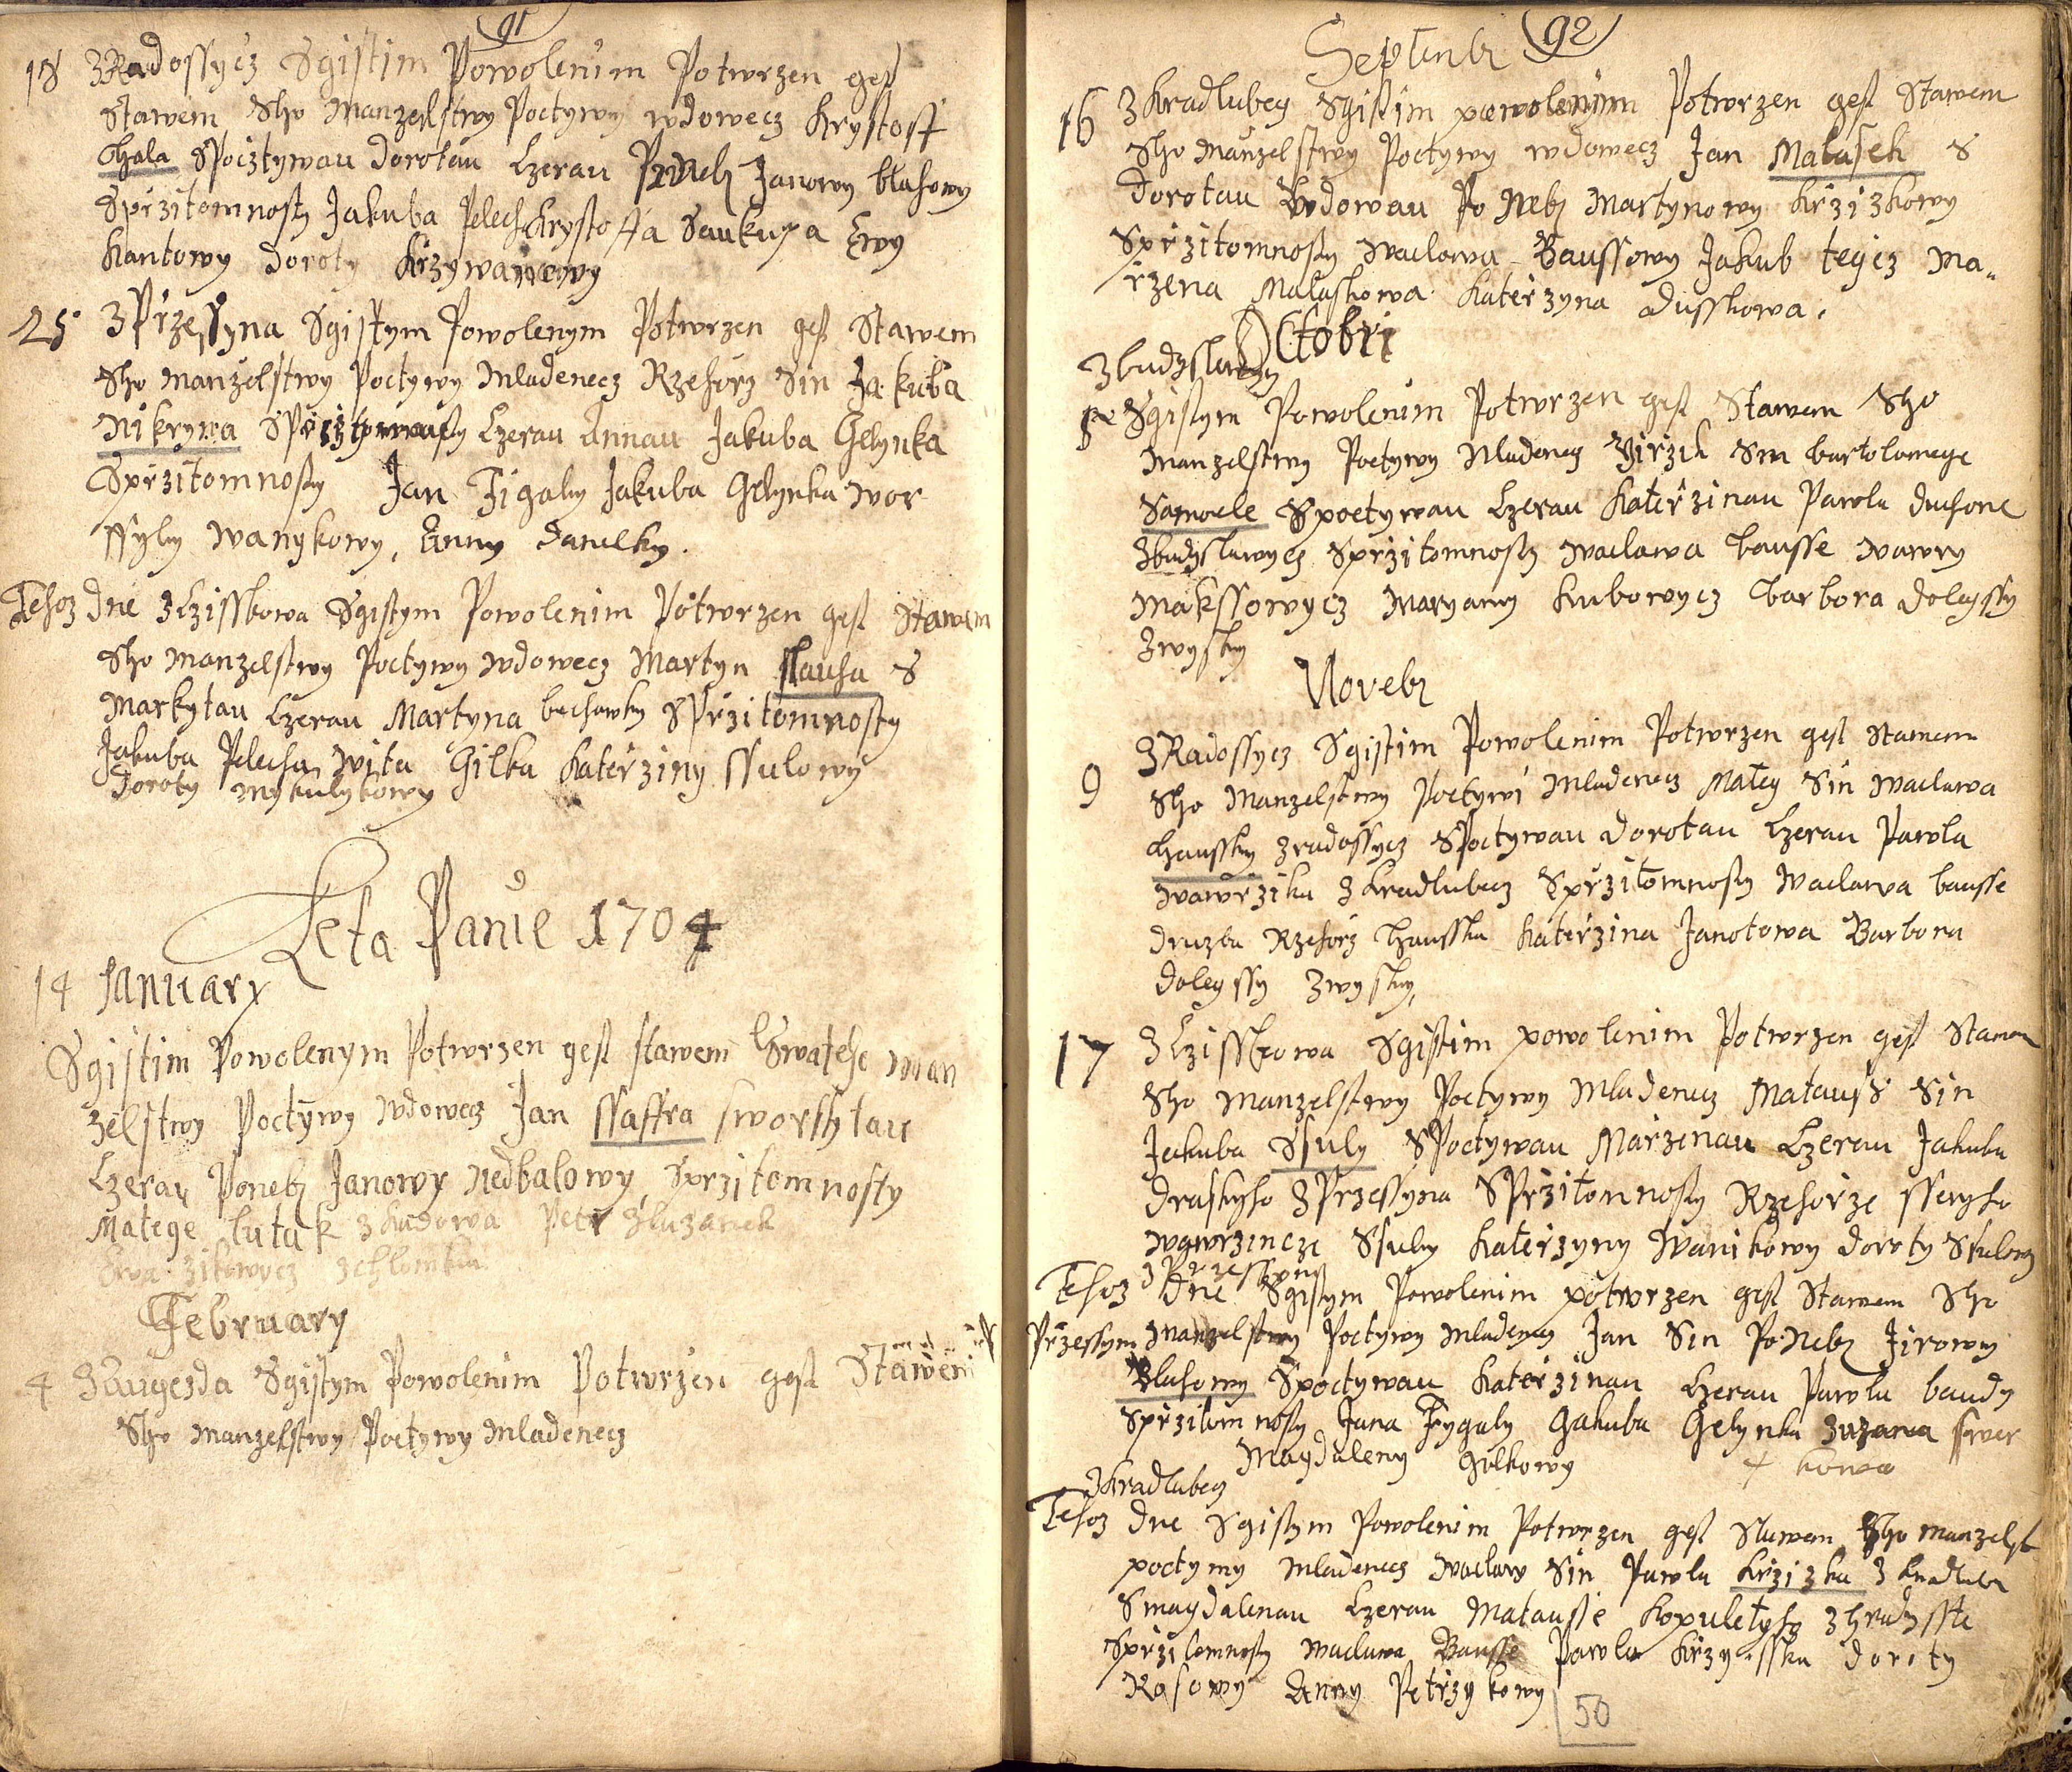 91
18 Z Radossycz Sgistim Powolenim Potwrzen gest
Stawem Sho Manzelstwy Poctywy wdowecz Krystoff
Chala Spocztywau Dorotau Czerau Po Neb Janowy blahowy
Sprzitomnosty Jakuba Pelech Krystoffa Saukupa Ewy
Kantowy Doroty Krzywancowy
25 Z Przessyna Sgistym Powolenym Potwrzen gest Stawem
Sho Manzelstwy Poctywy Mladenecz Rzehorz Sin Jakuba
Nikryna Czerau Annau Jakuba Gelynka
Sprzitomnosty Jan Figaly Jakuba Gelynka Wor
ssyly Wanykowy, Anny Danelky.
Tehoz Dne Z Czisskowa Sgistym Powolenim Potwrzen gest Stawem
Sho Manzelstwy Poctywy wdowecz Martyn slauha S
Markytau Czerau Martyna bechowky Sprzitomnosty
Jakuba Pelecha Wita Gilka Katerziny ssulowy
Doroty Mykulykowy
Leta Panie 1704
14 January
Sgistim Powolenym Potwrzen gest stawem Swateho Man
zelstwy Poctywy wdowecz Jan ssaffra sworssytau
Czerau Poneb Janowy Nedbalowy, Sprzitomnosty
Matege lutak z Chudowa Petr Zluzanek
Ewa Zikowycz z Chlomku
February
4 Z Augezda Sgistym Powolenim Potwrzen gest Stawem
Sho Manzelstwy Poctywy Mladenecz
92
Septenb
16 Z Kradlubcy Sgistim powolenim Potwrzen gest Stawem
Sho Manzelstwy Poctywy wdowecz Jan Malasek S
Dorotau Wdowau Po Neb Martynowy Krzizkowy
Sprzitomnosty Waclawa Baussowy Jakub tegcz Ma„
rzena Malaskowa Katerzyna Dusskowa.
Octobri
Z budzslawycz
Sgistym Powolenim Potwrzen gest Stawem Sho
Manzelstwy Poctywy Mladenecz Girzik Sin bartolomege
Samoele Spoctywau Czerau Katerzinau Pawla Duchone
Zbudzslawycz Sprzitomnosty Waclawa bausse Wawry
Makssowycz Maryany Kubowycz Barbora Doleyssy
Zwysky
Noveb
Z Radossycz Sgistim Powolenim Potwrzen gest Stawem
9 Sho Manzelstwy Poctywi Mladenecz Matey Sin Waclawa
Chaussky Zradossycz Spoctywau Dorotau Czerau Pawla
Wawrziku Z Kradlubcz Sprzitomnosty Waclawa bausse
Druzba Rzehorz Chausska Katerzina Janotowa Barbora
Doleyssy Zwysky,
17 Z Czisskowa Sgistim powolenim Potwrzen gest Stawem
Sho Manzelstwy Poctywy Mladenecz Matauss Sin
Jakuba Ssuly Spoctywau Marzenau Czerau Jakuba
Draskyho Z Przessyna Sprzitomnosty Rzehorze sseryho
Wawrzincze Ssuly Katerzyny Wanikowy Doroty Skulowy
z Przessyna
Tehoz Dne Sgistym Powolenim potwrzen gest Stawem Sho
Przessym Manzelstwy Poctywy Mladenecz Jan Sin Po Neb Jirowy
Blahowy Spoctywau Katerzinau Czerau Pawla baudy
Sprzitomnosty Jana Fygaly Gakuba Gelynka Zuzana syver
Magdaleny Gilkowy + kowa
Z Kradlubcy
Tehoz Dne Sgistym Powolenim Potwrzen gest Stawem Sho Manzelst
poctywy Mladenecz Waclaw Sin Pawla Krzizka z Kradlub
Smagdalenau Czerau Matausse Kopuletyho z hradyssta
Sprzitomnosty Waclawa Bausse Pawla Krzyzssku Doroty
Rasowy Anny Petrzykowy
50